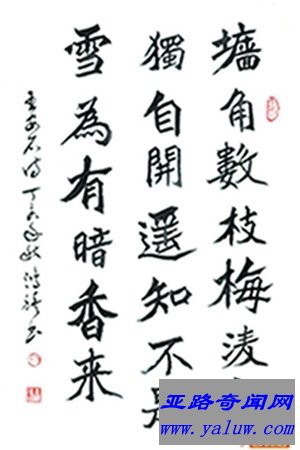 墻角數枝梅凌
獨自開遥知不是
雪為有暗香来
王安石诗
亚路奇闻网
www.yaluw.com